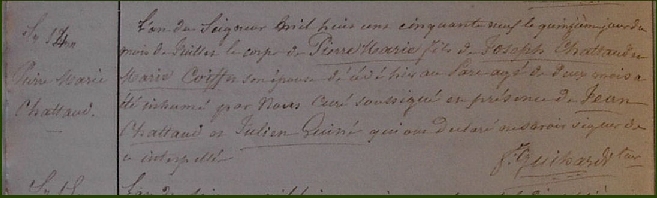 Sr 14.
Pierre Marie
Chattaud.
L'an du Seigneur Mil huit cent cinquante neuf le quinzième jour du
mois de Juillet le corps de Pierre Marie fils de Joseph Chattaud et
Marie Coiffu son épouse décédé hier au agé de deux mois a
été inhumé par Nous Curé soussigné en présence de Jean
Chattaud et Julien Quiné qui ont declaré ne savoir signer de
ce interpellé
Guihard
L'an du Seigneur